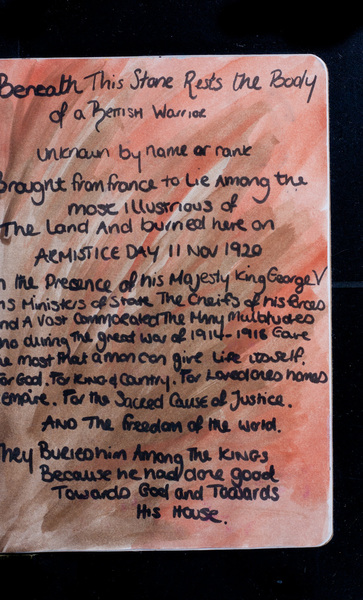 Beneath This Stone Rests the Body
of a British Warrior
Unknown by name or rank
Brought from france to Lie Among the
most Illustrious of
The Land And buried here on
ARMISTICE DAY 11 NOV 1920
n the Presence of his Majesty King George V
his Ministers of State The Cheifs of his forces
nd A Vast The Many Multitudes
ho during the great war of 1914-1918 Gave
he most that a man can give Life itself.
For God. For King & Country. For Loved ones homes
empire. For the Sacred Cause of Justice.
AND The freedom of the world.
They Buried him Among The KINGS
Because he had done good
Towards God and Towards
His House.